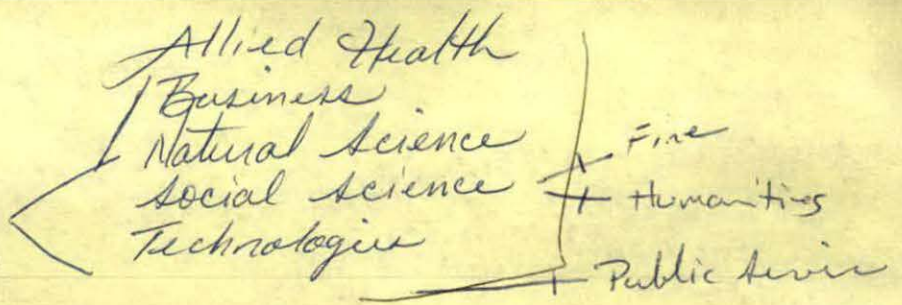 Allied Health
Business
Natural Science
Social Science
Technologies
+ Fine
+ Humanities
+ Public Servic